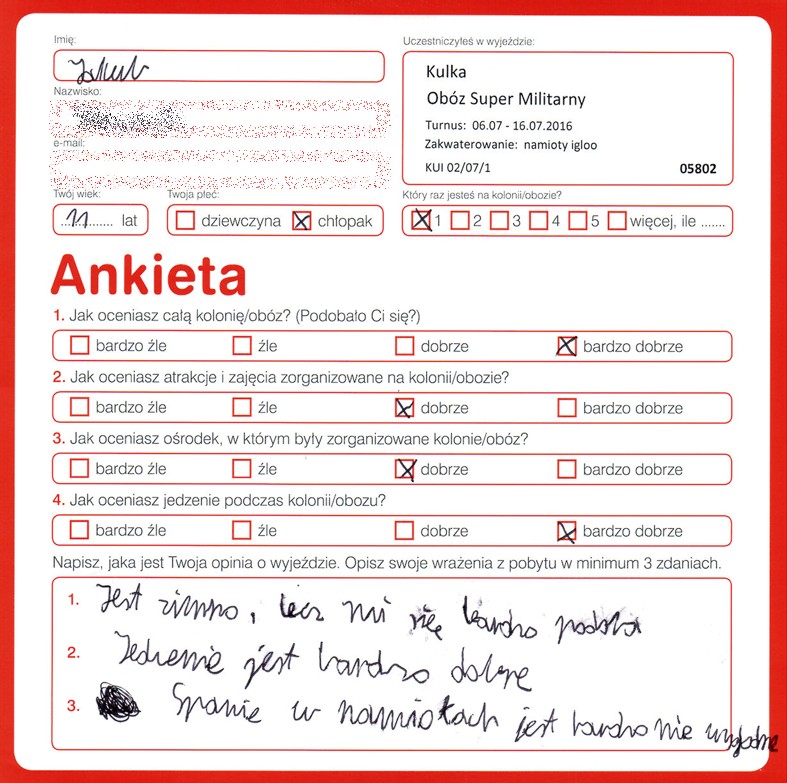 Imię:
Jakub
Uczestniczyłeś w wyjeździe:
Kulka
Obóz Super Militarny
Turnus: 06.07 - 16.07.2016
Zakwaterowanie: namioty igloo
KUI 02/07/1 05802
Nazwisko:
e-mail:
Twój wiek:
11 lat
Twoja płeć:
dziewczyna chłopak
Który raz jesteś na kolonii/obozie?
1 2 3 4 5 więcej, ile .......
Ankieta
1. Jak oceniasz całą kolonię/obóz? (Podobało Ci się?)
bardzo źle źle dobrze bardzo dobrze
2. Jak oceniasz atrakcje i zajęcia zorganizowane na kolonii/obozie?
bardzo źle źle dobrze bardzo dobrze
3. Jak oceniasz ośrodek, w którym były zorganizowane kolonie/obóz?
bardzo źle źle dobrze bardzo dobrze
4. Jak oceniasz jedzenie podczas kolonii/obozu?
bardzo źle źle dobrze bardzo dobrze
Napisz, jaka jest Twoja opinia o wyjeździe. Opisz swoje wrażenia z pobytu w minimum 3 zdaniach.
1. Jest zimno, lecz mi się bardzo podoba
2. Jedzenie jest bardzo dobre
3. Spanie w namiotach jest bardzo nie wygodne